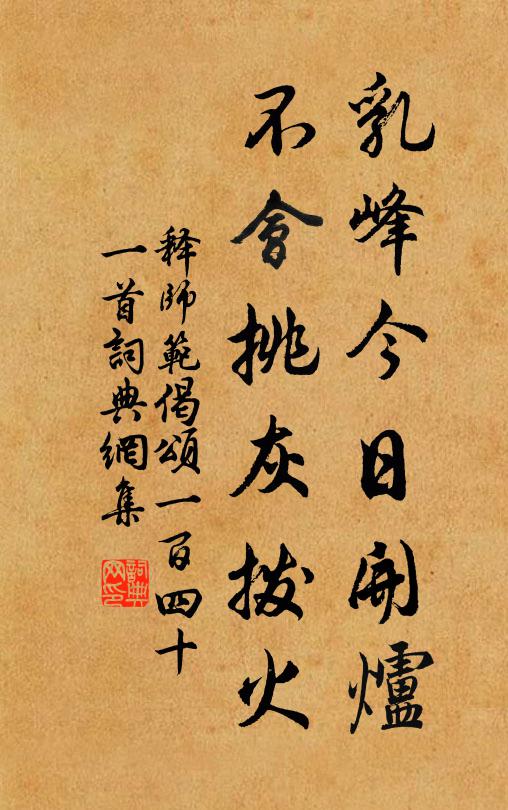 乳峰今日開爐
不會挑灰撥火
释師範偈頌一百四十
一首詞典網集
詞典
网印